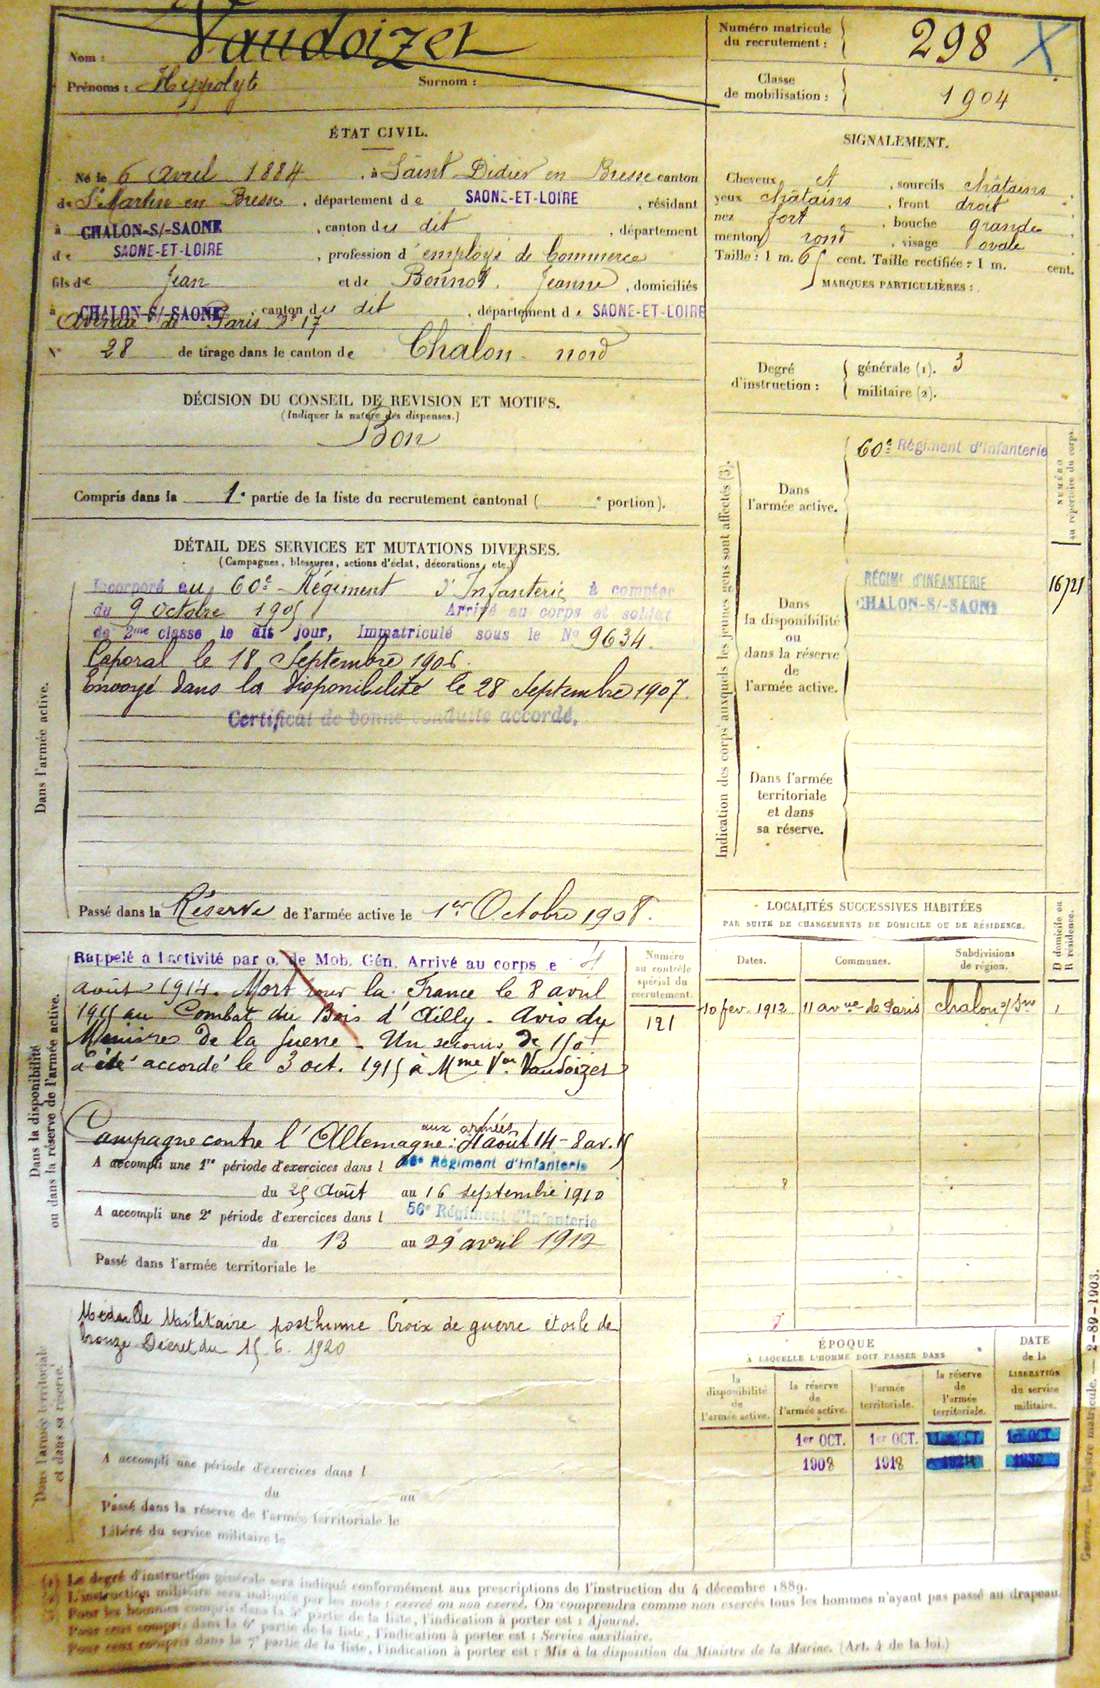 Nom : Vaudoizet
Prénoms : Hippolyte Surnom :
Numéro matricule du recrutement : 298 X
Classe de mobilisation : 1904
ÉTAT CIVIL.
Né le 6 Avril 1884, à Saint Didier en Bresse canton
de St Martin en Bresse, département de SAONE-ET-LOIRE, résidant
à CHALON-S/-SAONE, canton du dit, département
de SAONE-ET-LOIRE, profession d'employé de Commerce
fils de Jean et de Bonnot Jeanne, domiciliés
à CHALON-S/-SAONE, canton du dit, département de SAONE-ET-LOIRE
Avenue de Paris n° 17
N° 28 de tirage dans le canton de Chalon-nord
SIGNALEMENT.
Cheveux ct, sourcils châtains
yeux châtains, front droit
nez fort, bouche grande
menton rond, visage ovale
Taille : 1 m. 65 cent. Taille rectifiée : 1 m. cent.
MARQUES PARTICULIÈRES :
Degré d'instruction : générale (1). 3
militaire (2).
DÉCISION DU CONSEIL DE REVISION ET MOTIFS.
(Indiquer la nature des dispenses.)
Bon
Compris dans la 1e partie de la liste du recrutement cantonal ( e portion).
DÉTAIL DES SERVICES ET MUTATIONS DIVERSES.
(Campagnes, blessures, actions d'éclat, décorations, etc.)
Dans l'armée active.
Incorporé au 60e Régiment d'Infanterie à compter
du 9 octobre 1905 Arrivé au corps et soldat
de 2me classe le dit jour, Immatriculé sous le No 9634.
Caporal le 18 Septembre 1906.
Envoyé dans la disponibilité le 28 Septembre 1907.
Certificat de bonne conduite accordé.
Passé dans la Réserve de l'armée active le 1er Octobre 1908.
Indication des corps auxquels les jeunes gens sont affectés (3).
NUMÉRO au répertoire du corps.
Dans l'armée active.
60e Régiment d'Infanterie
Dans la disponibilité ou dans la réserve de l'armée active.
RÉGIMt D'INFANTERIE
CHALON-S/-SAONE
16721
Dans l'armée territoriale et dans sa réserve.
Dans la disponibilité ou dans la réserve de l'armée active.
Rappelé à l'activité par o. de Mob. Gén. Arrivé au corps le 4
août 1914. Mort pour la France le 8 avril
1915 au Combat du Bois d'Ailly - Avis du
Ministre de la Guerre - Un secours de 150f
a été accordé le 3 oct. 1915 à Mme Vve Vaudoizet
aux armées
Campagne contre l'Allemagne : 4 août 14 - 8 av. 15
A accompli une 1re période d'exercices dans l 56e Régiment d'Infanterie
du 25 Août au 16 septembre 1910
A accompli une 2e période d'exercices dans l 56e Régiment d'Infanterie
du 13 au 29 avril 1912
Passé dans l'armée territoriale le
Numéro au contrôle spécial du recrutement.
121
LOCALITÉS SUCCESSIVES HABITÉES
PAR SUITE DE CHANGEMENTS DE DOMICILE OU DE RÉSIDENCE.
Dates. Communes. Subdivisions de région. D domicile ou R résidence.
10 fév. 1912 11 avnue de Paris Chalon s/Sne
Dans l'armée territoriale et dans sa réserve.
Médaille Militaire posthume Croix de guerre étoile de
bronze Décret du 15. 6. 1920
A accompli une période d'exercices dans l
du au
Passé dans la réserve de l'armée territoriale le
Libéré du service militaire le
ÉPOQUE
A LAQUELLE L'HOMME DOIT PASSER DANS
la disponibilité de l'armée active.
la réserve de l'armée active.
l'armée territoriale.
la réserve de l'armée territoriale.
DATE de la LIBÉRATION du service militaire.
1er OCT. 1er OCT.
1908 1918
(1) Le degré d'instruction générale sera indiqué conformément aux prescriptions de l'instruction du 4 décembre 1889.
(2) L'instruction militaire sera indiquée par les mots : exercé ou non exercé. On comprendra comme non exercés tous les hommes n'ayant pas passé au drapeau.
(3) Pour les hommes compris dans la 5e partie de la liste, l'indication à porter est : Ajourné.
Pour ceux compris dans la 6e partie de la liste, l'indication à porter est : Service auxiliaire.
Pour ceux compris dans la 7e partie de la liste, l'indication à porter est : Mis à la disposition du Ministre de la Marine. (Art. 4 de la loi.)
Guerre. — Registre matricule. — 2-89-1903.